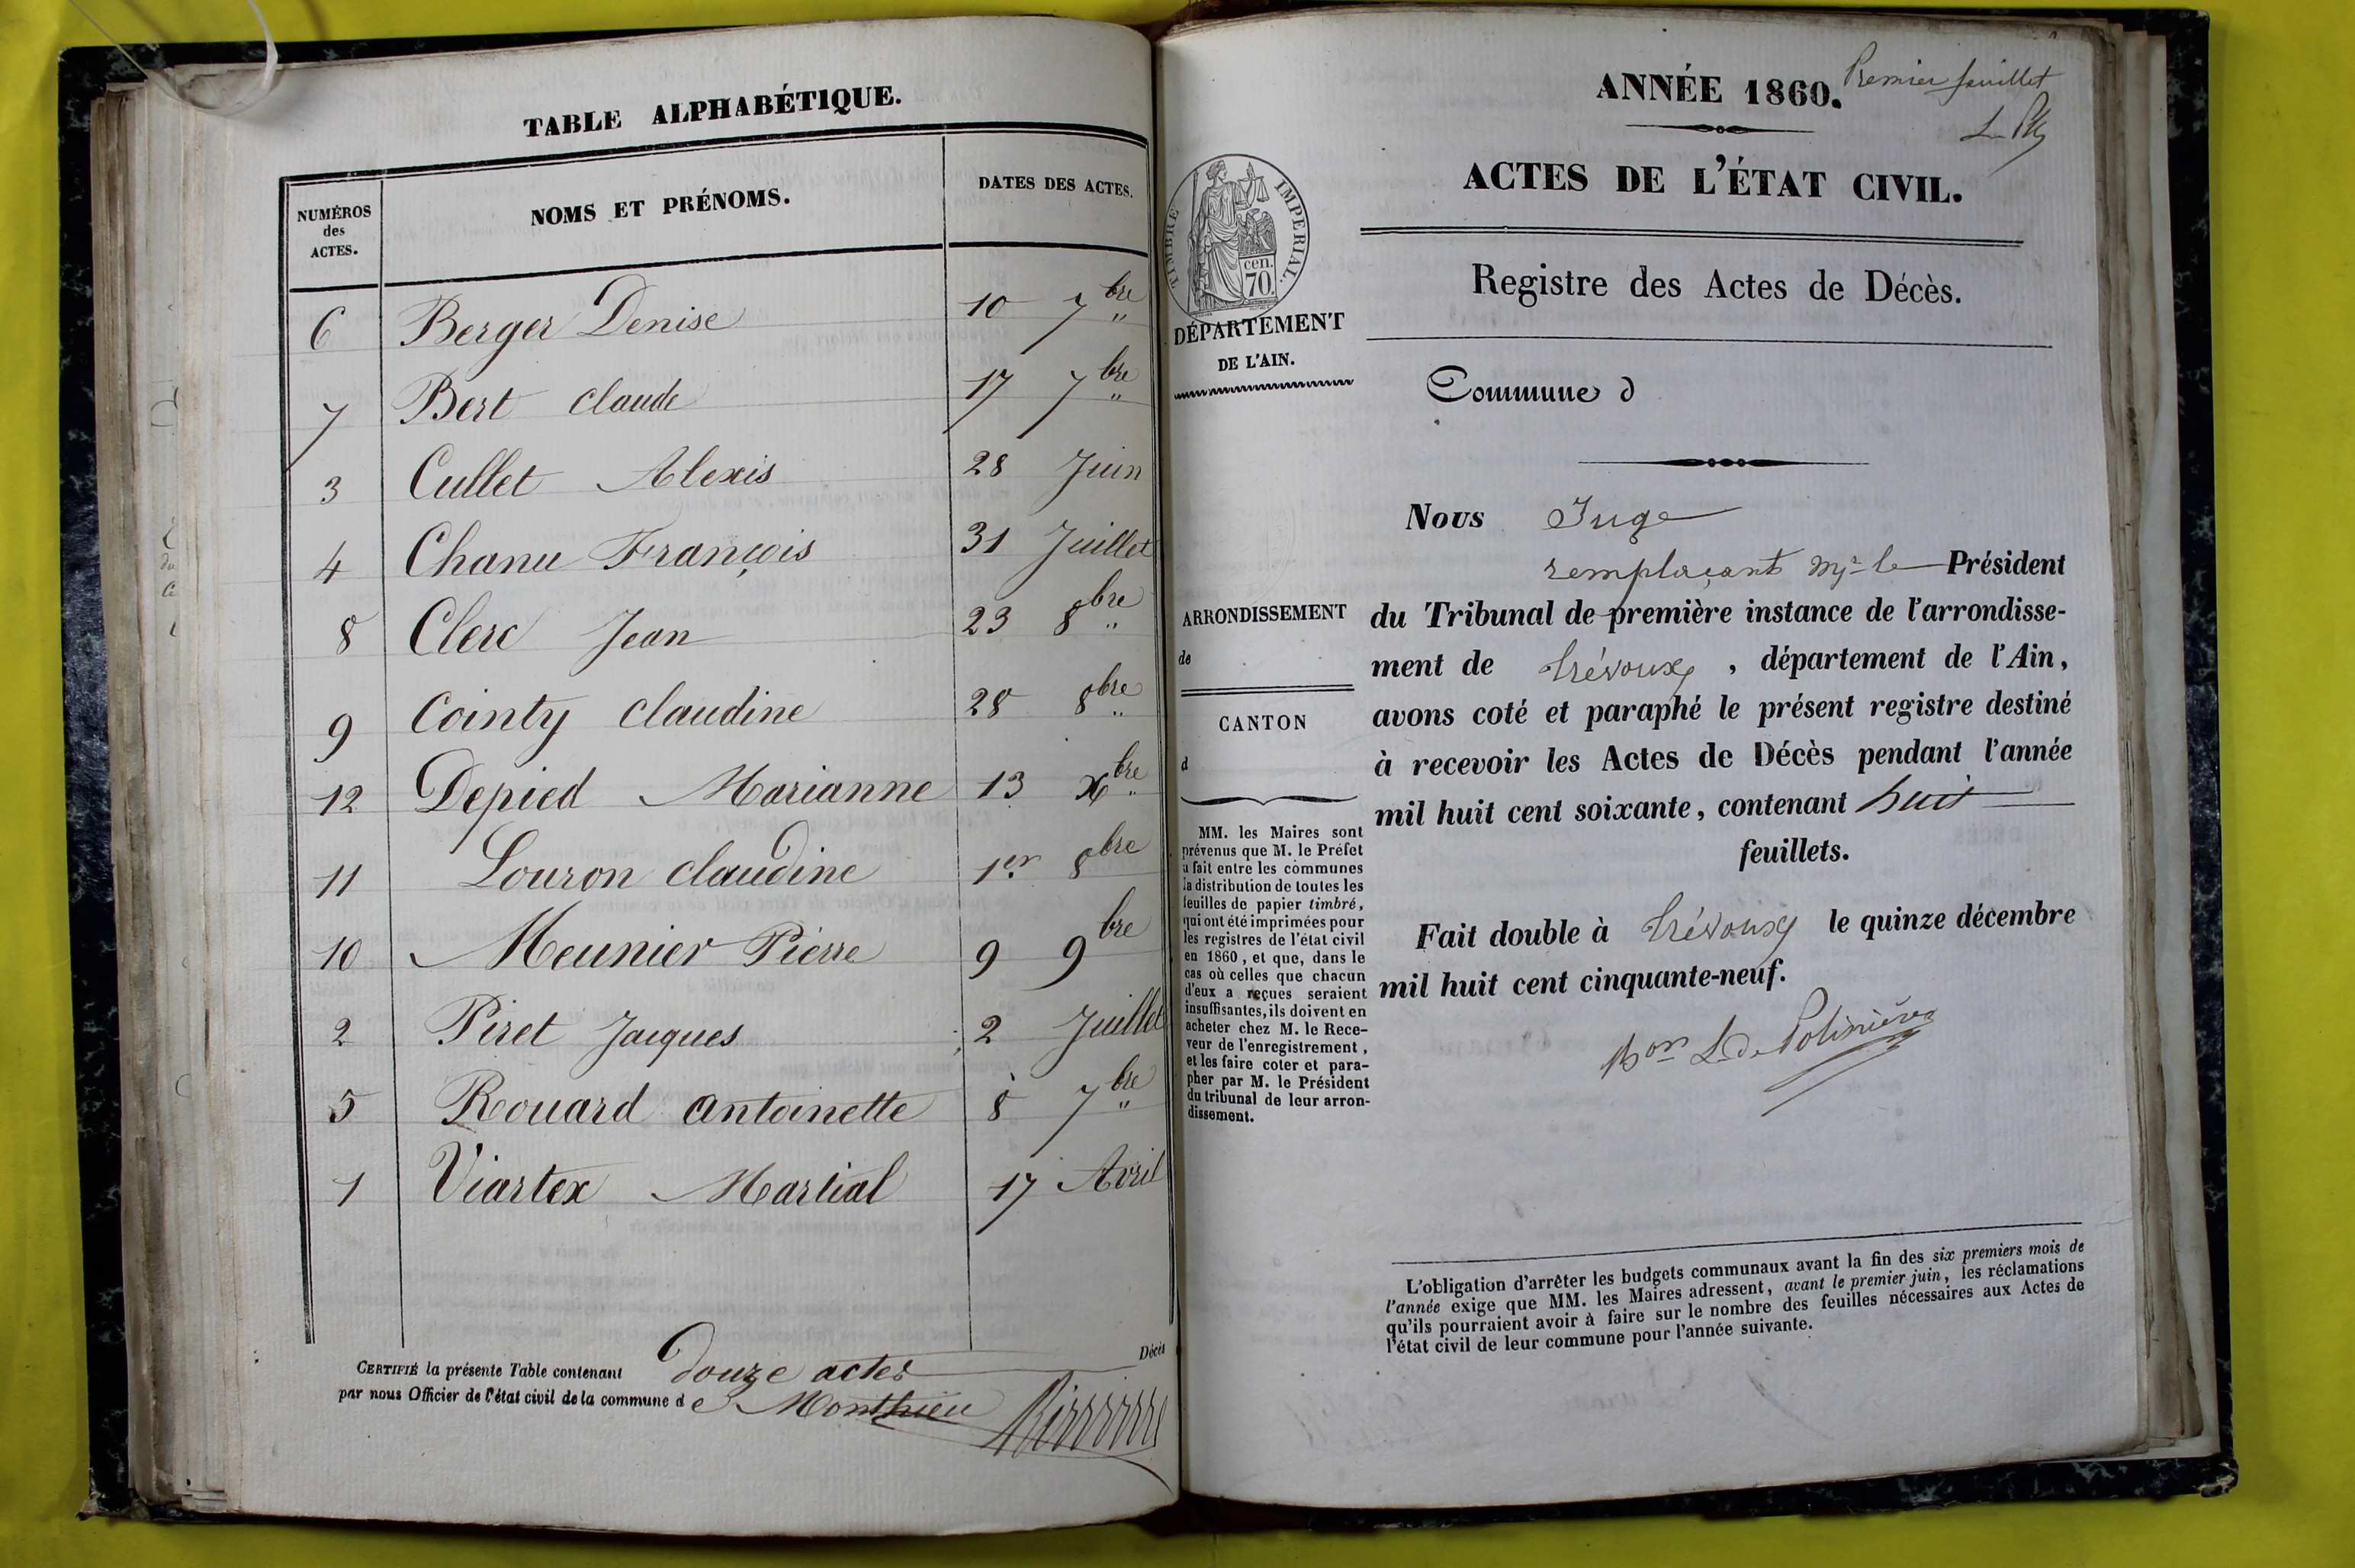 TABLE ALPHABÉTIQUE.
NUMÉROS des ACTES. NOMS ET PRÉNOMS. DATES DES ACTES.
6 Berger Denise 10 7bre
7 Bert Claude 17 7bre
3 Cullet Alexis 28 Juin
4 Chanu François 31 Juillet
8 Clerc Jean 23 8bre
9 Cointy Claudine 28 8bre
12 Depied Marianne 13 Xbre
11 Louron Claudine 1er 8bre
10 Meunier Pierre 9 9bre
2 Piret Jacques 2 Juillet
5 Rouard Antoinette 8 7bre
1 Viartex Martial 17 Avril
Décès
CERTIFIÉ la présente Table contenant douze actes
par nous Officier de l'état civil de la commune de Monthieu
Premier feuillet
ANNÉE 1860.
ACTES DE L'ÉTAT CIVIL.
Registre des Actes de Décès.
TIMBRE IMPERIAL.
70 cen.
DÉPARTEMENT
DE L'AIN.
Commune d
ARRONDISSEMENT
de
CANTON
d
MM. les Maires sont
prévenus que M. le Préfet
a fait entre les communes
la distribution de toutes les
feuilles de papier timbré,
qui ont été imprimées pour
les registres de l'état civil
en 1860, et que, dans le
cas où celles que chacun
d'eux a reçues seraient
insuffisantes, ils doivent en
acheter chez M. le Rece-
veur de l'enregistrement,
et les faire coter et para-
pher par M. le Président
du tribunal de leur arron-
dissement.
Nous Juge
remplaçant Mr le Président
du Tribunal de première instance de l'arrondisse-
ment de Trévoux, département de l'Ain,
avons coté et paraphé le présent registre destiné
à recevoir les Actes de Décès pendant l'année
mil huit cent soixante, contenant huit
feuillets.
Fait double à Trévoux le quinze décembre
mil huit cent cinquante-neuf.
Bon L. de Polinière
L'obligation d'arrêter les budgets communaux avant la fin des six premiers mois de
l'année exige que MM. les Maires adressent, avant le premier juin, les réclamations
qu'ils pourraient avoir à faire sur le nombre des feuilles nécessaires aux Actes de
l'état civil de leur commune pour l'année suivante.